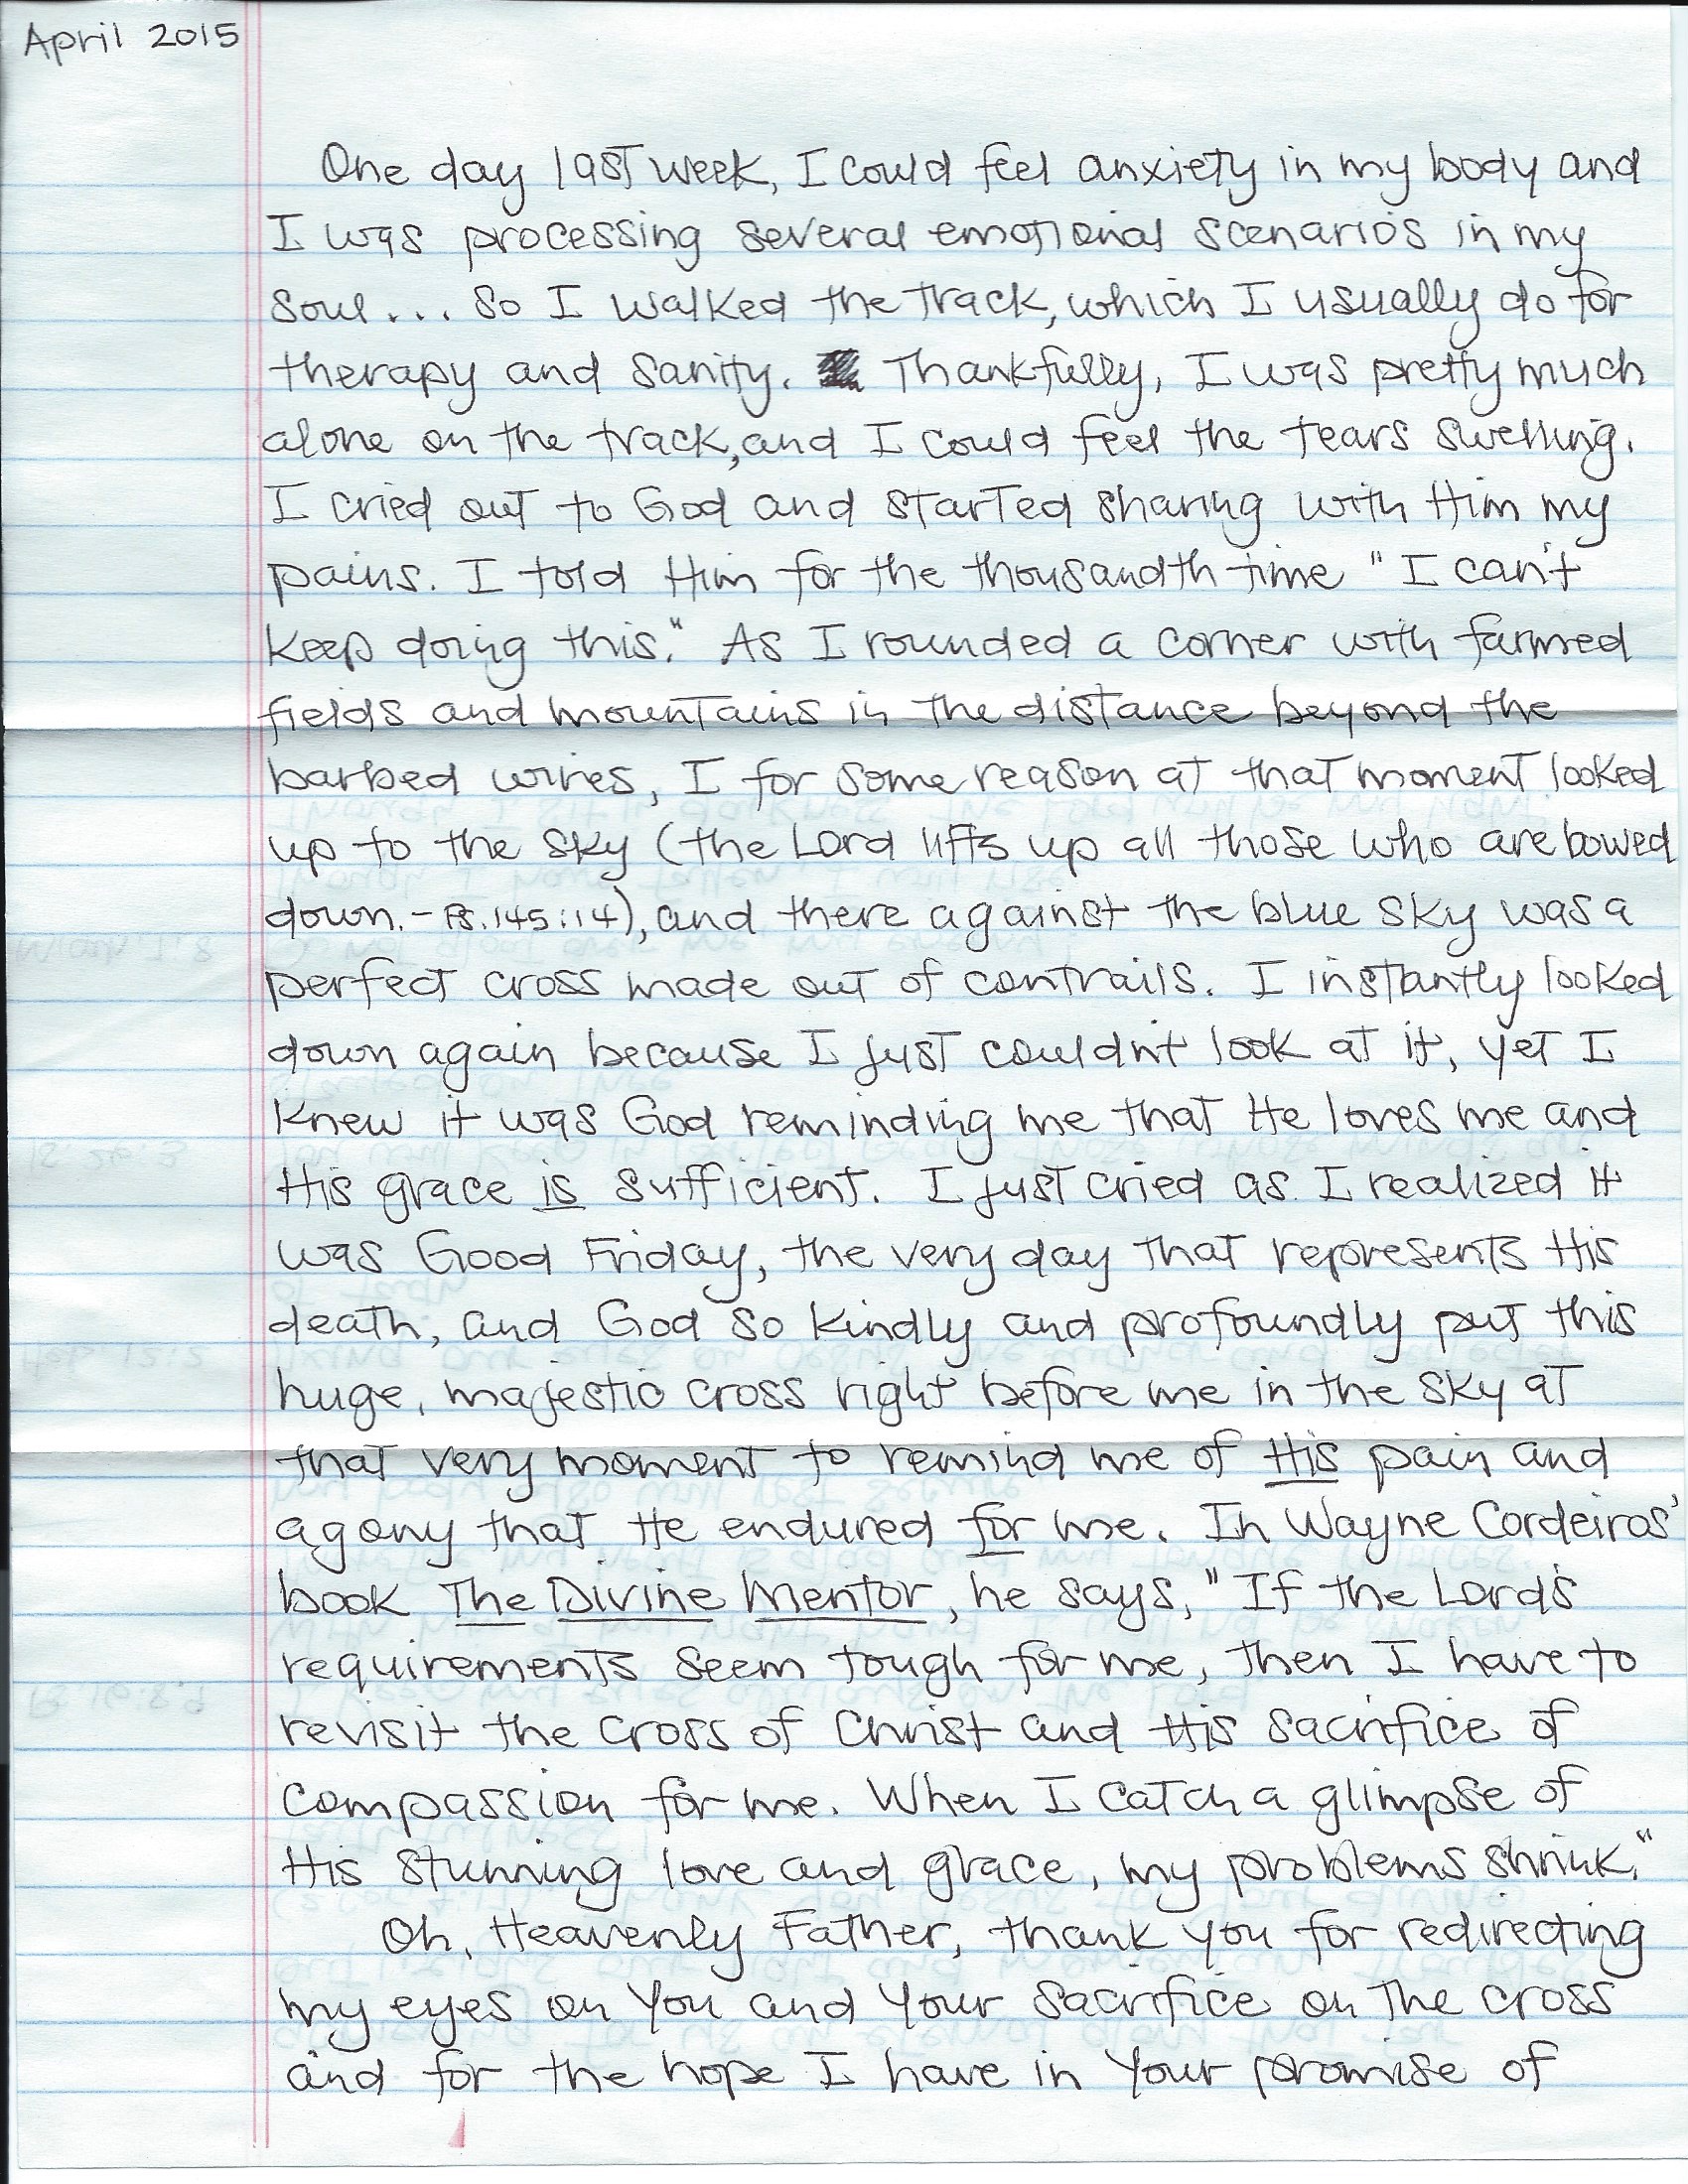 April 2015
One day last week, I could feel anxiety in my body and
I was processing several emotional scenarios in my
soul... so I walked the track, which I usually do for
therapy and sanity. Thankfully, I was pretty much
alone on the track, and I could feel the tears swelling.
I cried out to God and started sharing with Him my
pains. I told Him for the thousandth time "I can't
keep doing this." As I rounded a corner with farmed
fields and mountains in the distance beyond the
barbed wires, I for some reason at that moment looked
up to the sky (the Lord lifts up all those who are bowed
down. - Ps. 145:14), and there against the blue sky was a
perfect cross made out of contrails. I instantly looked
down again because I just couldn't look at it, yet I
knew it was God reminding me that He loves me and
His grace is sufficient. I just cried as I realized it
was Good Friday, the very day that represents His
death, and God so kindly and profoundly put this
huge, majestic cross right before me in the sky at
that very moment to remind me of His pain and
agony that He endured for me. In Wayne Cordeiros'
book The Divine Mentor, he says, "If the Lord's
requirements seem tough for me, then I have to
revisit the cross of Christ and His sacrifice of
compassion for me. When I catch a glimpse of
His stunning love and grace, my problems shrink."
Oh, Heavenly Father, thank you for redirecting
my eyes on You and Your sacrifice on the cross
and for the hope I have in Your promise of